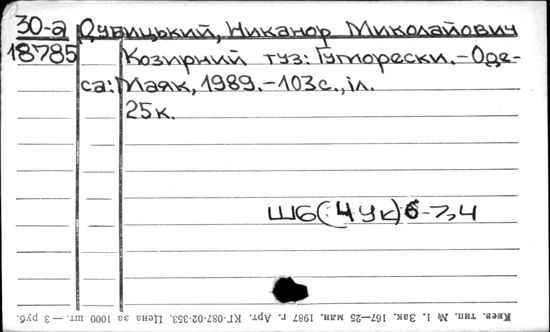 30-а Дубицький, Никанор Миколайович
18785 Козирний туз: Гуморески.-Оде-
са: Маяк, 1989.-103с., іл.
25к.
Ш6(4Ук)6-7,4
Киев. тип. № 1. Зак. 167—25 млн. 1987 г. Арт. КГ-087-02-353. Цена за 1000 шт. — 3 руб.